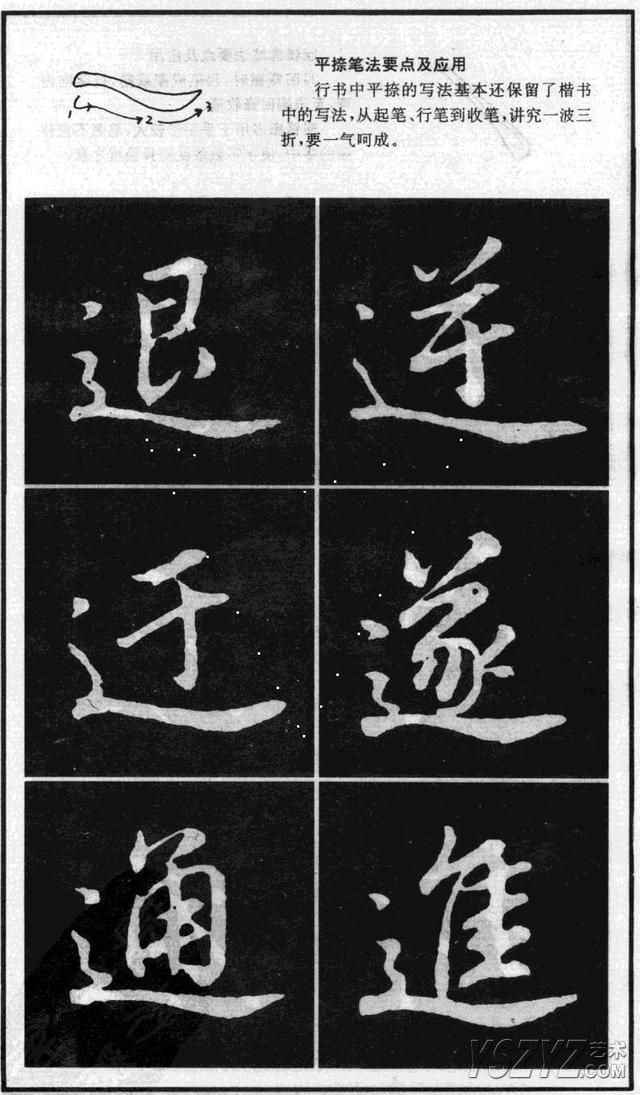 平捺笔法要点及应用
行书中平捺的写法基本还保留了楷书
中的写法，从起笔、行笔到收笔，讲究一波三
折，要一气呵成。
1 2 3
退 逆
迂 遂
通 進
YSZYZ艺术.COM